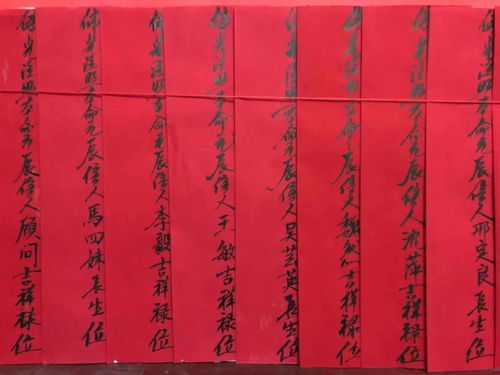 佛光注照本命元辰信人邢定良長生位
佛光注照本命元辰信人沈萍吉祥禄位
佛光注照本命元辰信人魏吉祥禄位
佛光注照本命元辰信人吴芸英長生位
佛光注照本命元辰信人王敏吉祥禄位
佛光注照本命元辰信人李毅吉祥禄位
佛光注照本命元辰信人馬四妹長生位
佛光注照本命元辰信人顾问吉祥禄位